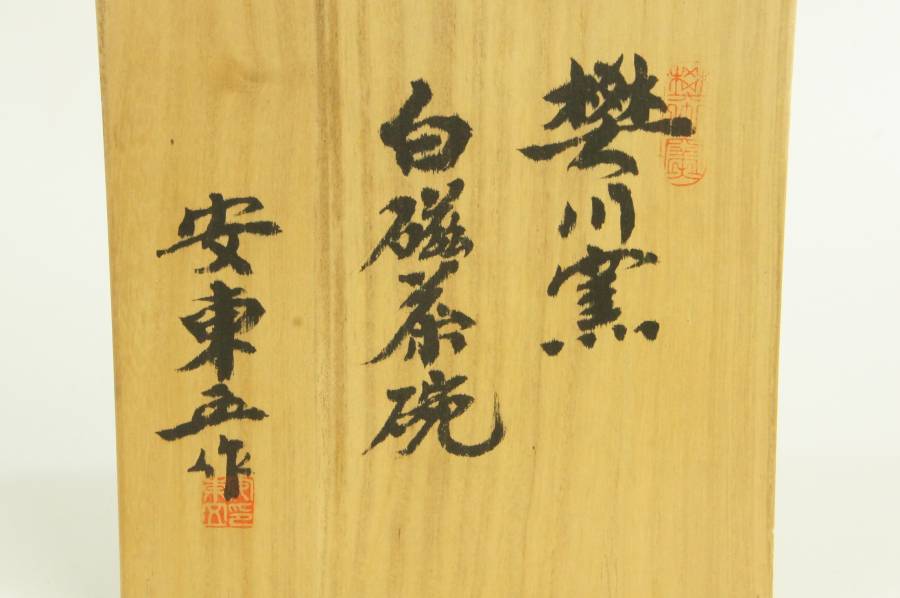 樊川窯
白磁茶碗
安東五作